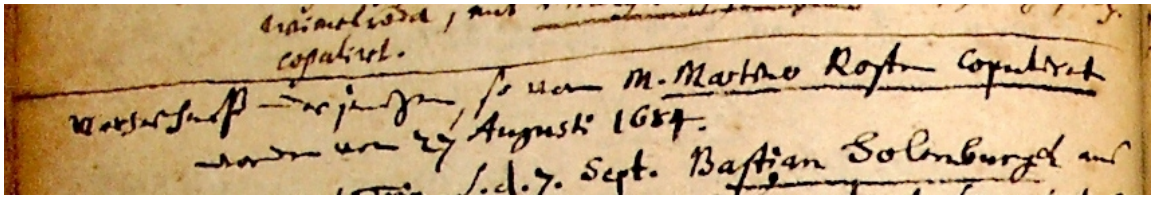 Wimelroda, mit
copuliret.
Verzeichniß derjenigen, so von M. Martino Rosten Copuliret
worden vom 27 Augusti 1684.
d. 7. Sept. Bastian Solenburgk aus